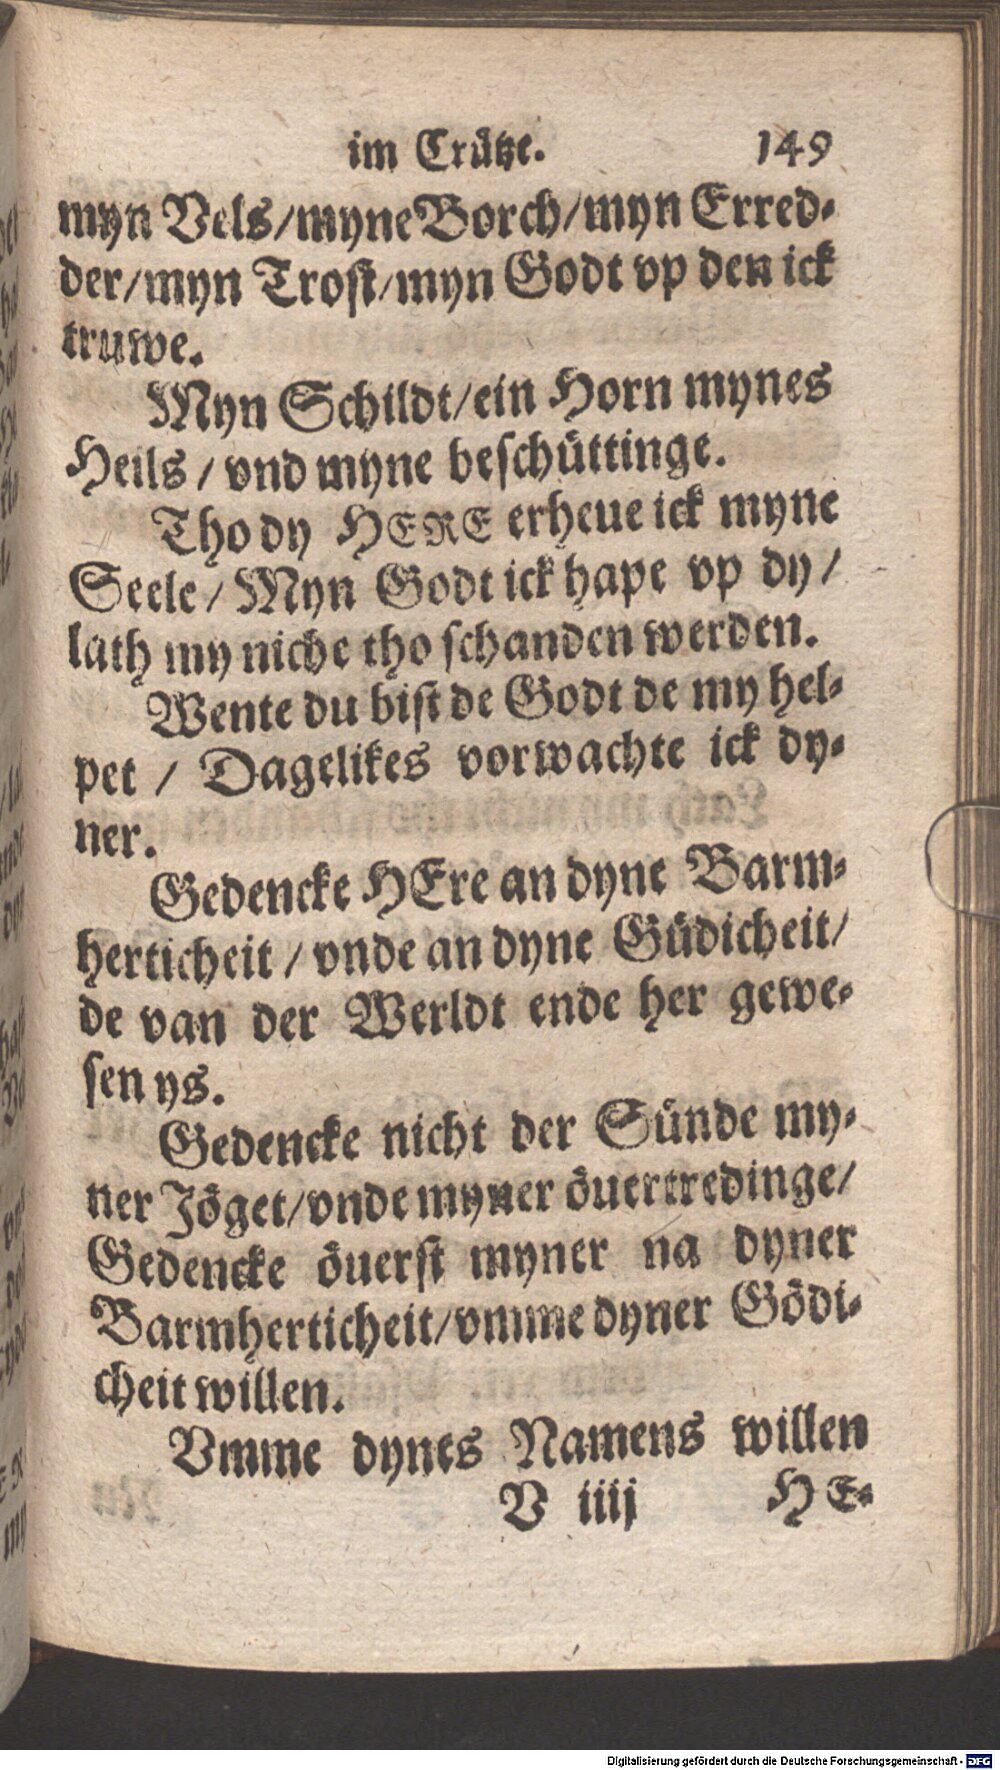 im Crütze. 149
myn Vels/myne Borch/myn Erred-
der/myn Trost/myn Godt vp den ick
truwe.
Myn Schildt/ein Horn mynes
Heils / vnd myne beschüttinge.
Tho dy HERE erheue ick myne
Seele / Myn Godt ick hape vp dy /
lath my niche tho schanden werden.
Wente du bist de Godt de my hel-
pet / Dagelikes vorwachte ick dy-
ner.
Gedencke HEre an dyne Barm-
herticheit / vnde an dyne Güdicheit/
de van der Werldt ende her gewe-
sen ys.
Gedencke nicht der Sünde my-
ner Jöget/vnde myner öuertredinge/
Gedencke öuerst myner na dyner
Barmherticheit/vmme dyner Gödi-
cheit willen.
Vmme dynes Namens willen
V iiij HE-
Digitalisierung gefördert durch die Deutsche Forschungsgemeinschaft - DFG